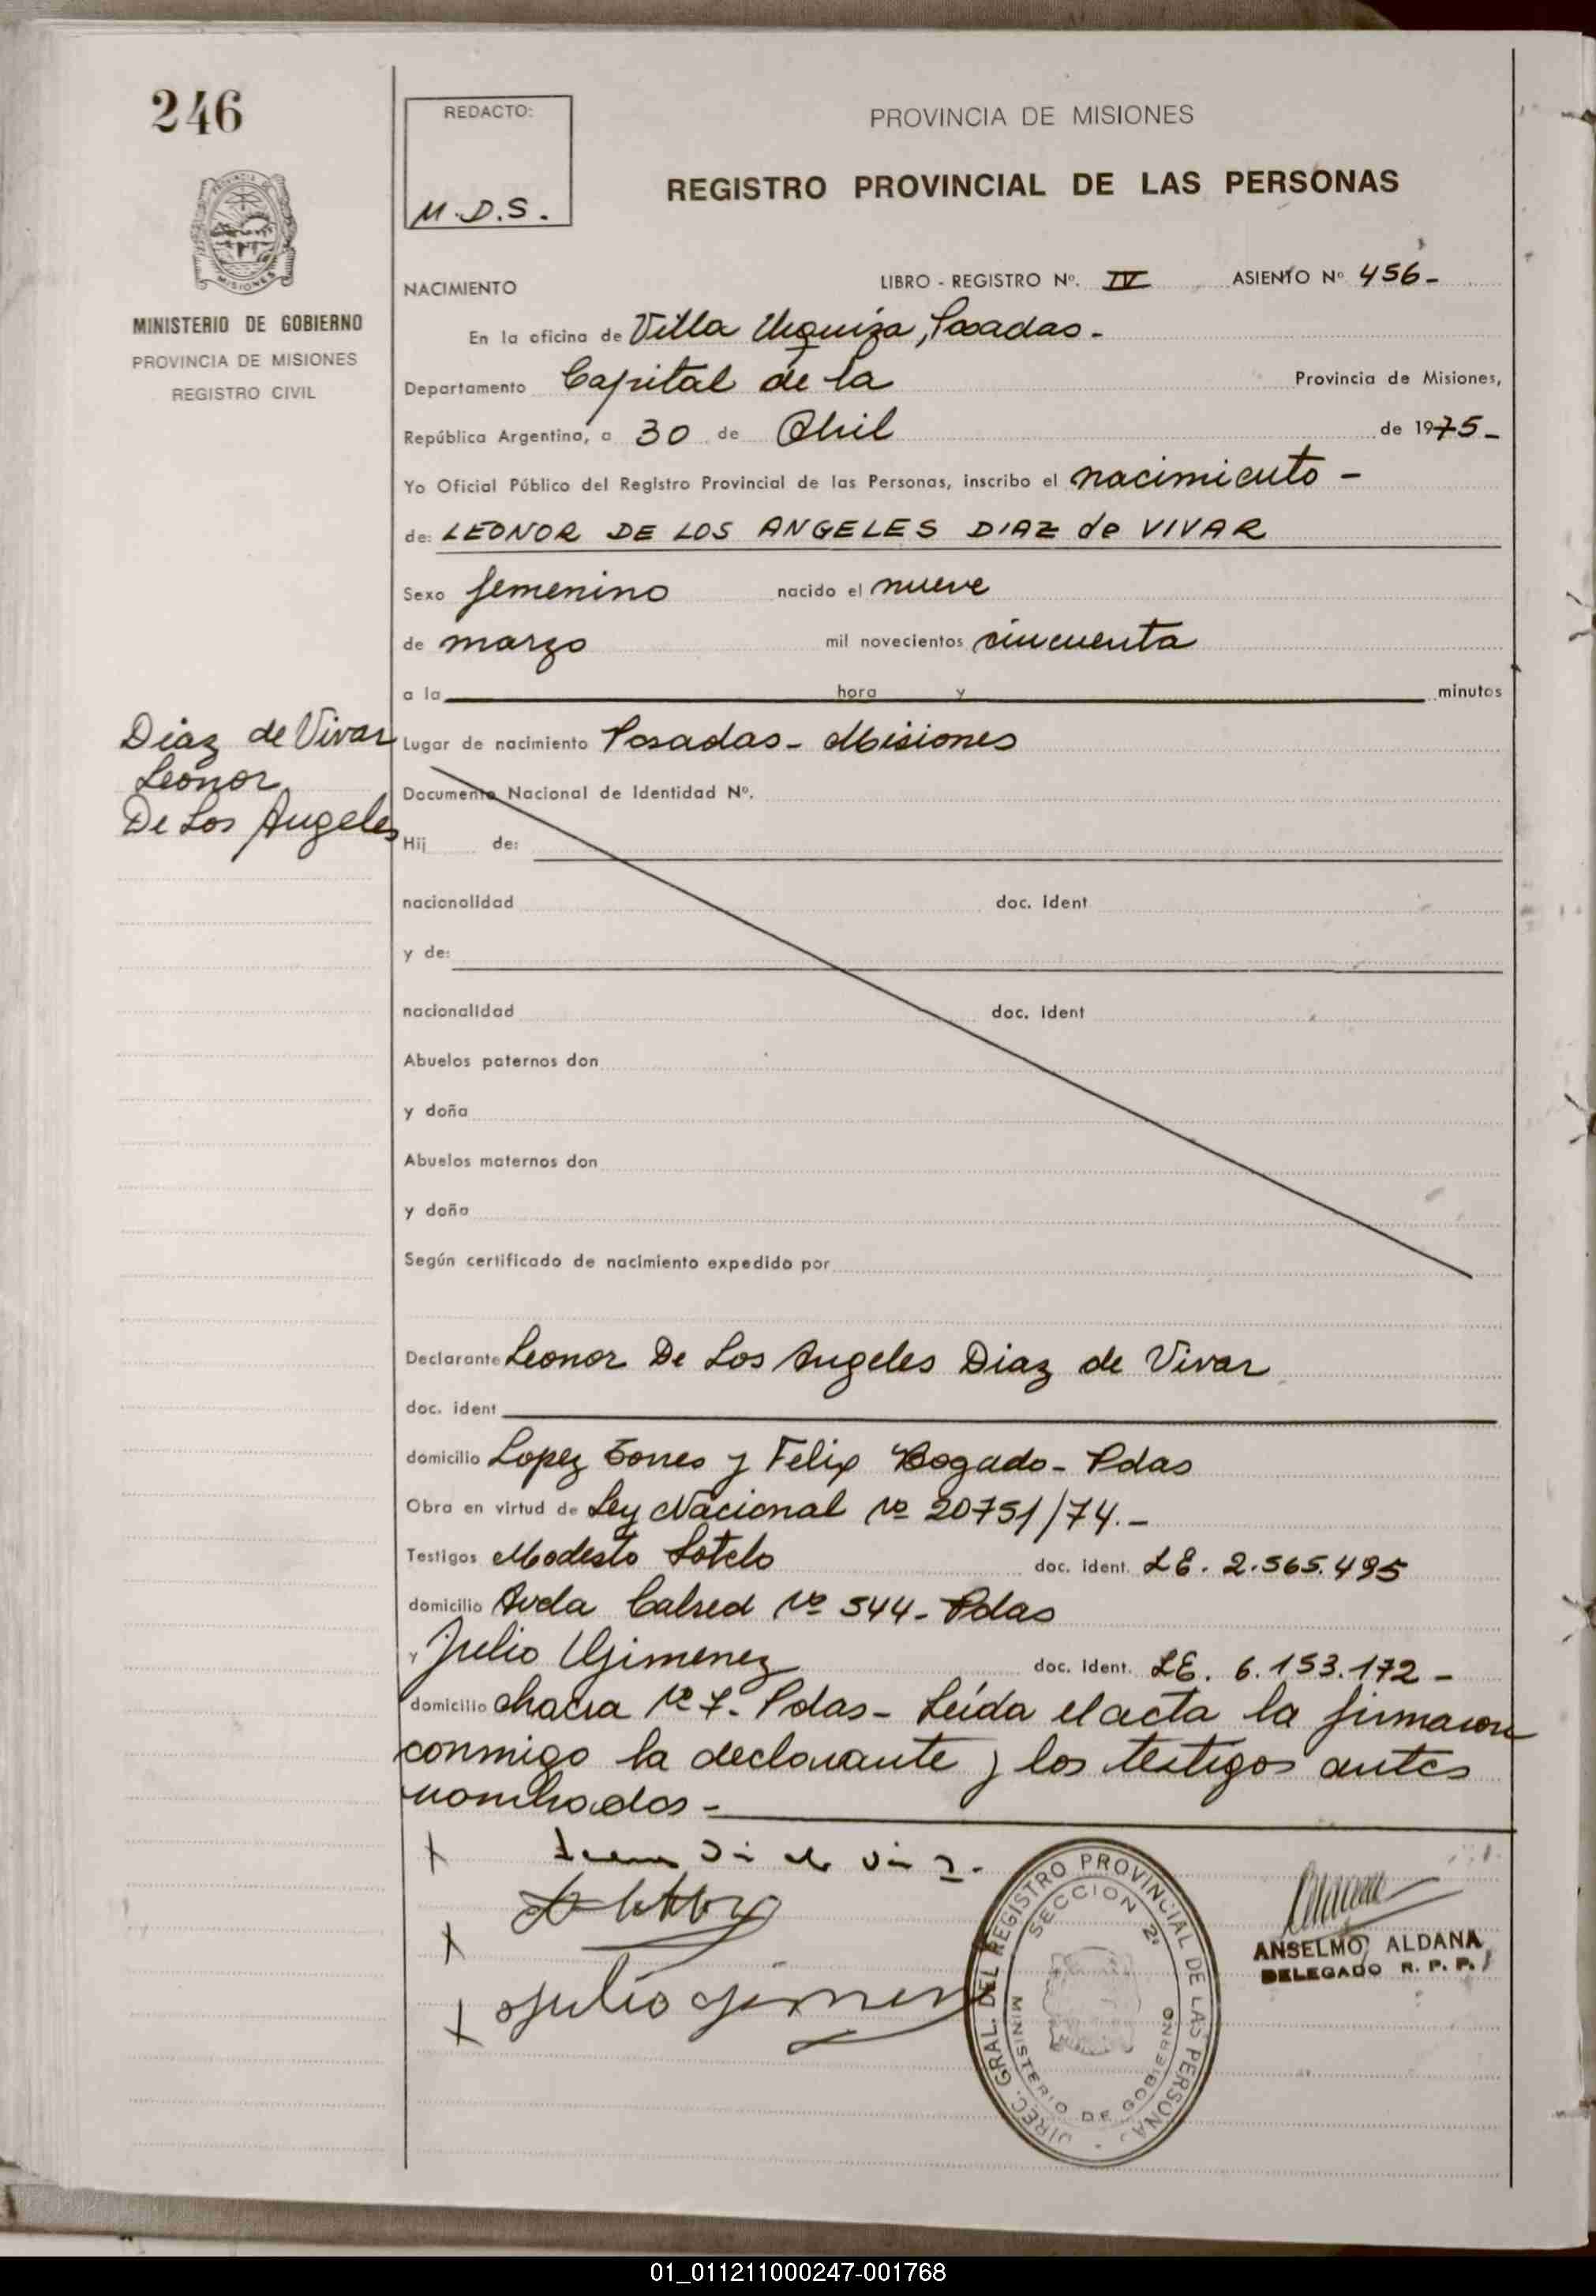 246
REDACTO:
M.D.S.
PROVINCIA DE MISIONES
REGISTRO PROVINCIAL DE LAS PERSONAS
PROVINCIA DE
MISIONES
MINISTERIO DE GOBIERNO
PROVINCIA DE MISIONES
REGISTRO CIVIL
NACIMIENTO LIBRO - REGISTRO Nº. IV ASIENTO Nº 456-
En la oficina de Villa Urquiza, Posadas-
Departamento Capital de la Provincia de Misiones,
República Argentina, a 30 de Abril de 1975-
Yo Oficial Público del Registro Provincial de las Personas, inscribo el nacimiento -
de: LEONOR DE LOS ANGELES DIAZ de VIVAR
Sexo femenino nacido el nueve
de marzo mil novecientos cincuenta
a la hora y minutos
Diaz de Vivar
Leonor
De Los Angeles
Lugar de nacimiento Posadas- Misiones
Documento Nacional de Identidad Nº.
Hij de:
nacionalidad doc. ident
y de:
nacionalidad doc. ident
Abuelos paternos don
y doña
Abuelos maternos don
y doña
Según certificado de nacimiento expedido por
Declarante Leonor De Los Angeles Diaz de Vivar
doc. ident
domicilio Lopez Torres y Felix Bogado- Pdas
Obra en virtud de Ley Nacional Nº 20751/74.-
Testigos Modesto Sotelo doc. ident. LE. 2.565.495
domicilio Avda Cabred Nº 544- Pdas
y Julio Gimenez doc. ident. LE. 6.153.172-
domicilio chacra Nº 7- Pdas- Leída el acta la firmaron
conmigo la declarante y los testigos antes
nombrados-
Julio Gimenez
DIREC. GRAL. DEL REGISTRO PROVINCIAL DE LAS PERSONAS
SECCION 2ª
MINISTERIO DE GOBIERNO
ANSELMO ALDANA
DELEGADO R. P. P.
01_011211000247-001768